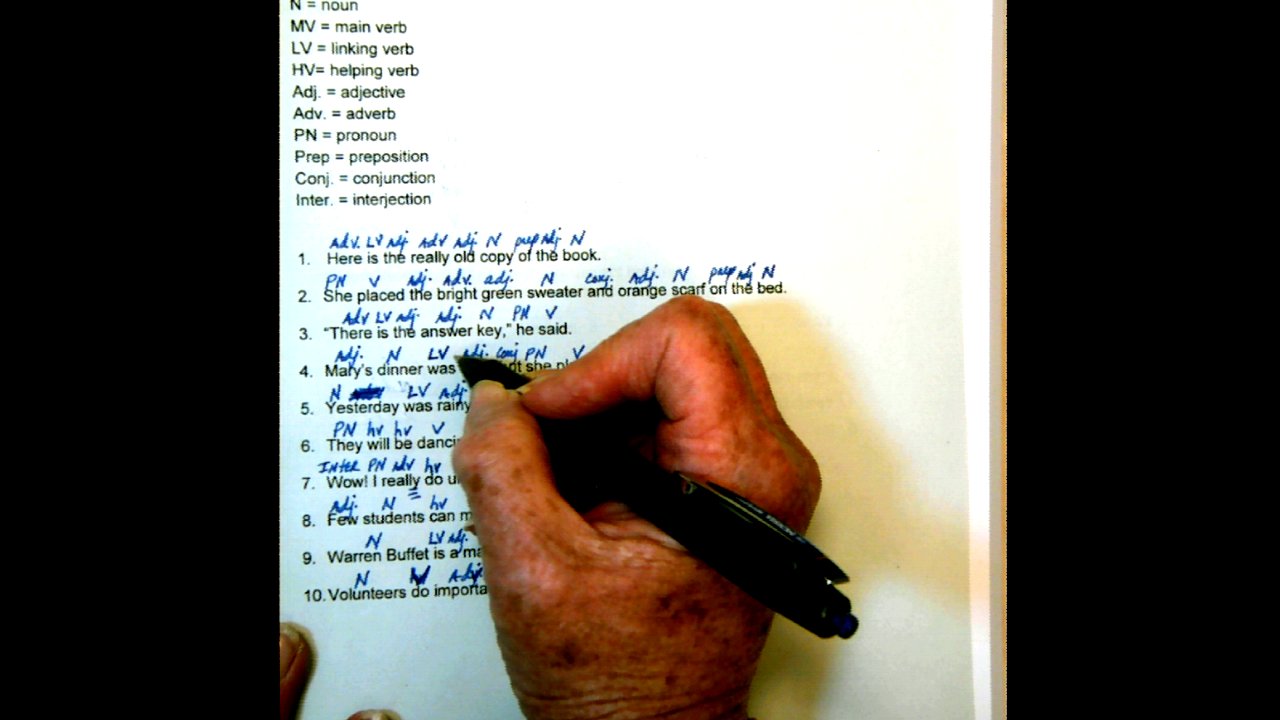 N = noun
MV = main verb
LV = linking verb
HV= helping verb
Adj. = adjective
Adv. = adverb
PN = pronoun
Prep = preposition
Conj. = conjunction
Inter. = interjection
Adv. LV Adj Adv Adj. N prep Adj N
1. Here is the really old copy of the book.
PN V Adj. Adv. adj. N conj. Adj. N prep Adj N
2. She placed the bright green sweater and orange scarf on the bed.
Adv LV Adj. Adj. N PN V
3. "There is the answer key," he said.
Adj. N LV adj. conj PN V
4. Mary's dinner was she
N LV Adj
5. Yesterday was rainy
PN hv hv V
6. They will be
INTER PN adv hv
7. Wow! I really do
Adj. N hv
8. Few students can
N LV Adj.
9. Warren Buffet is a
N Adj
10. Volunteers do